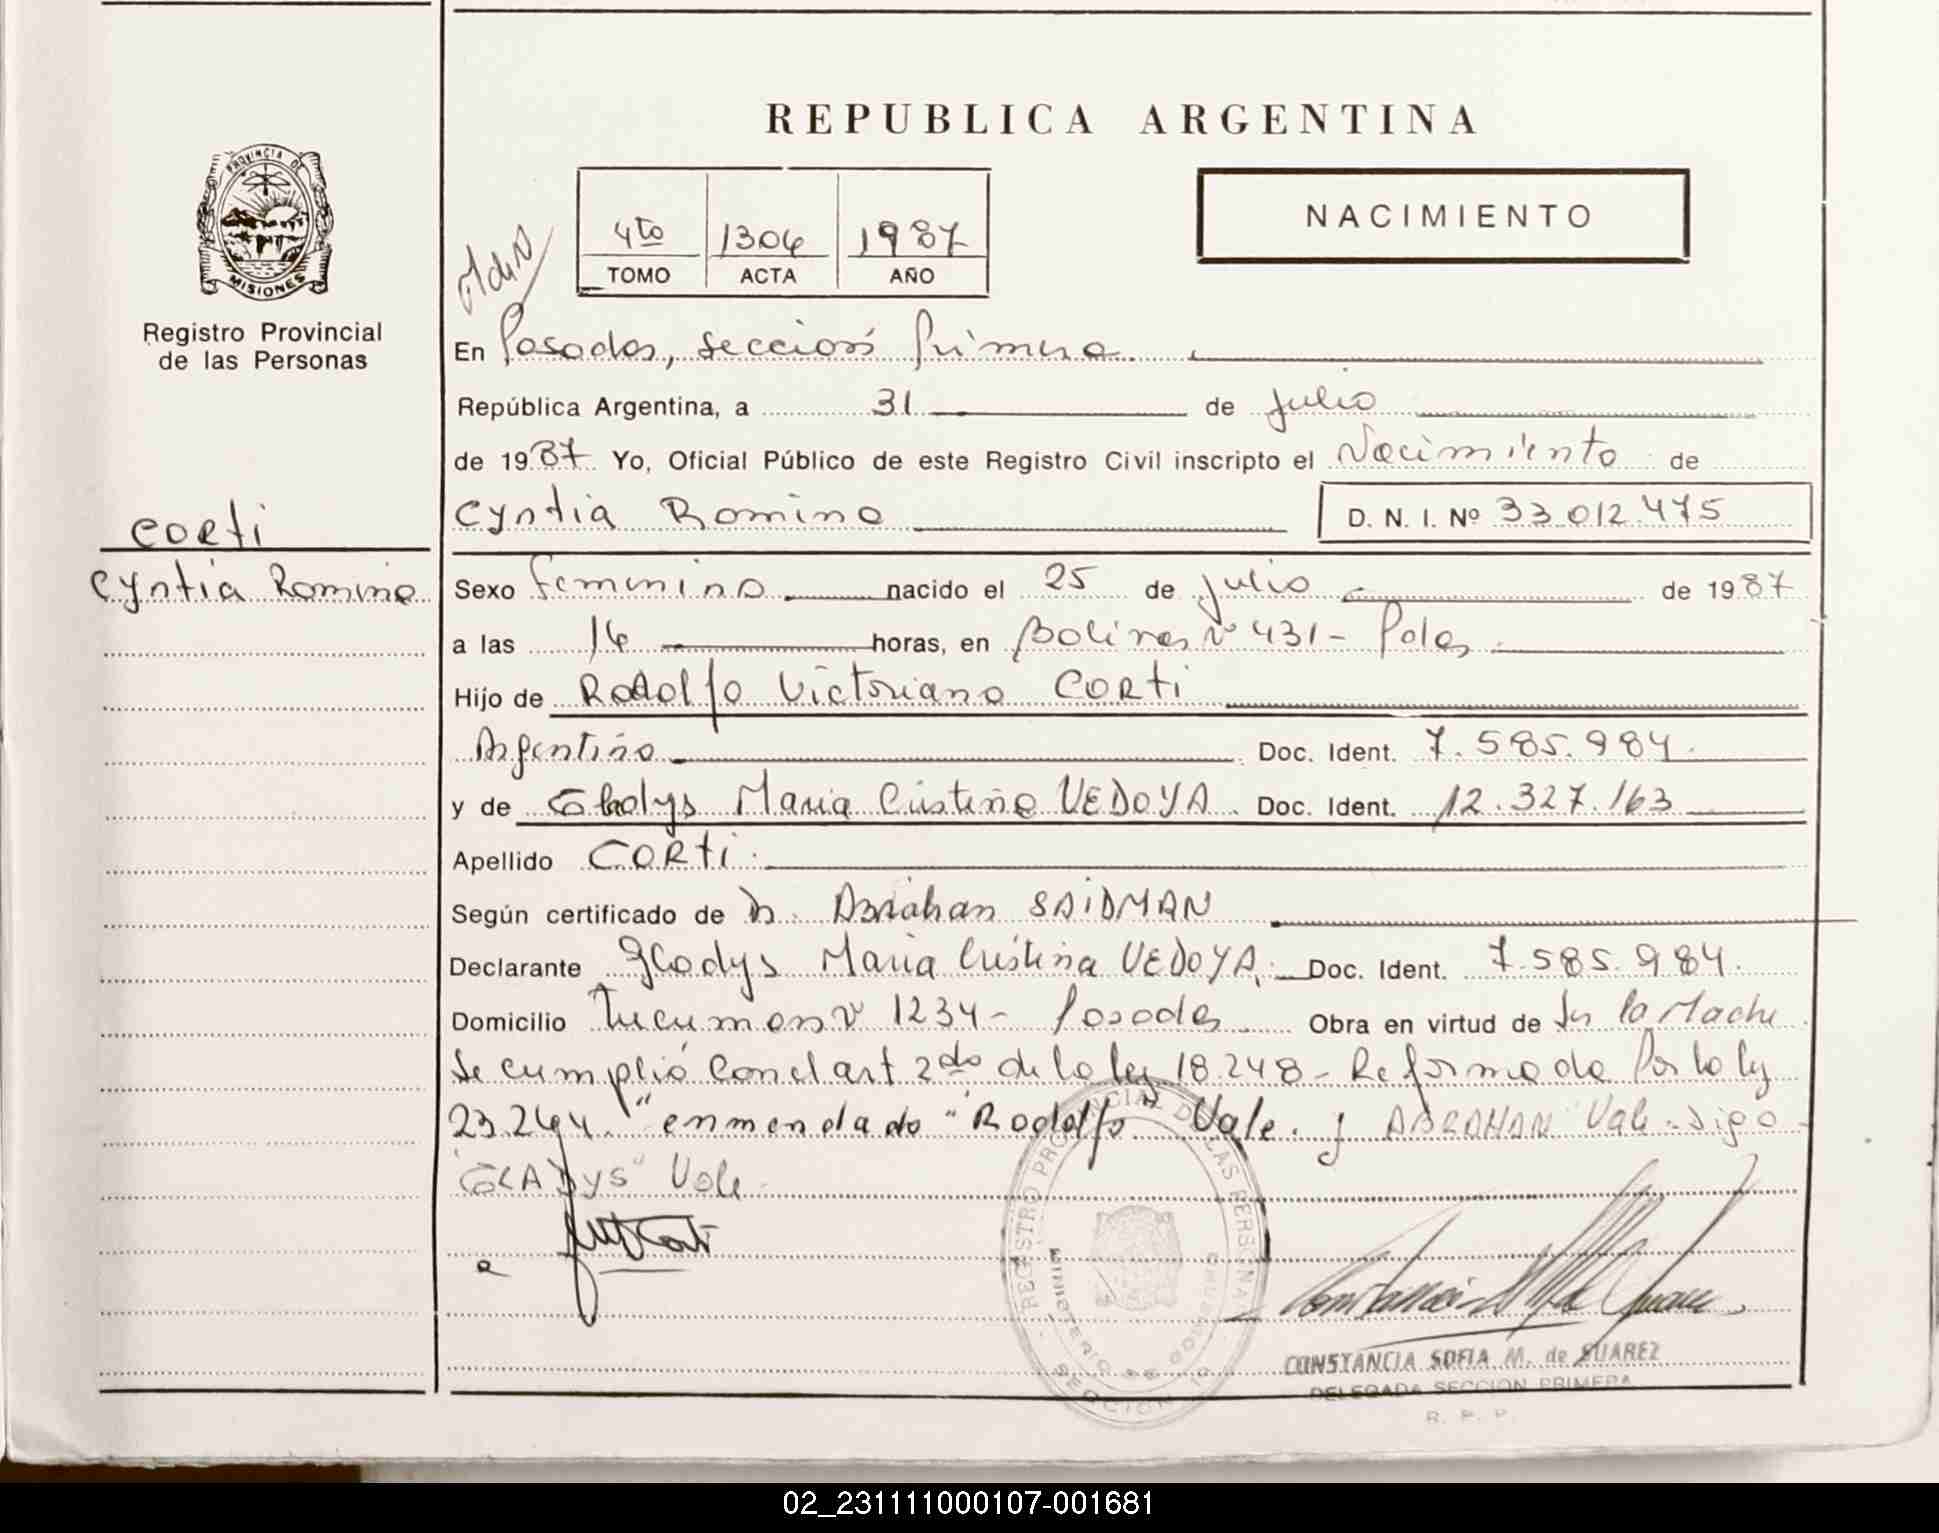 REPUBLICA ARGENTINA
NACIMIENTO
4to 1304 1987
TOMO ACTA AÑO
PROVINCIA DE
MISIONES
Registro Provincial
de las Personas
En Posadas, sección Primera
República Argentina, a 31 de julio
de 1987 Yo, Oficial Público de este Registro Civil inscripto el Nacimiento de
Cyntia Romina D. N. I. Nº 33.012.475
CORTI
Cyntia Romina
Sexo femenino nacido el 25 de julio de 1987
a las 14 horas, en Bolívar Nº 431 - Pdas
Hijo de Rodolfo Victoriano CORTI
Argentino Doc. Ident. 7.585.984.
y de Gladys Maria Cristina VEDOYA Doc. Ident. 12.327.163
Apellido CORTI
Según certificado de Dr. Abrahan SAIDMAN
Declarante Gladys Maria Cristina VEDOYA, Doc. Ident. 7.585.984.
Domicilio Tucuman Nº 1234 - Posadas Obra en virtud de Ser la Madre
Se cumplió con el art 2do de la ley 18.248 - Reformada Por la ley
23.264. "enmendado "Rodolfo" Vale. y ABRAHAN Vale - digo
"GLADYS" Vale
REGISTRO PROVINCIAL DE LAS PERSONAS
MINISTERIO DE GOBIERNO
SECCION 1ª
CONSTANCIA SOFIA M. de SUAREZ
DELEGADA SECCION PRIMERA
R. P. P.
02_231111000107-001681